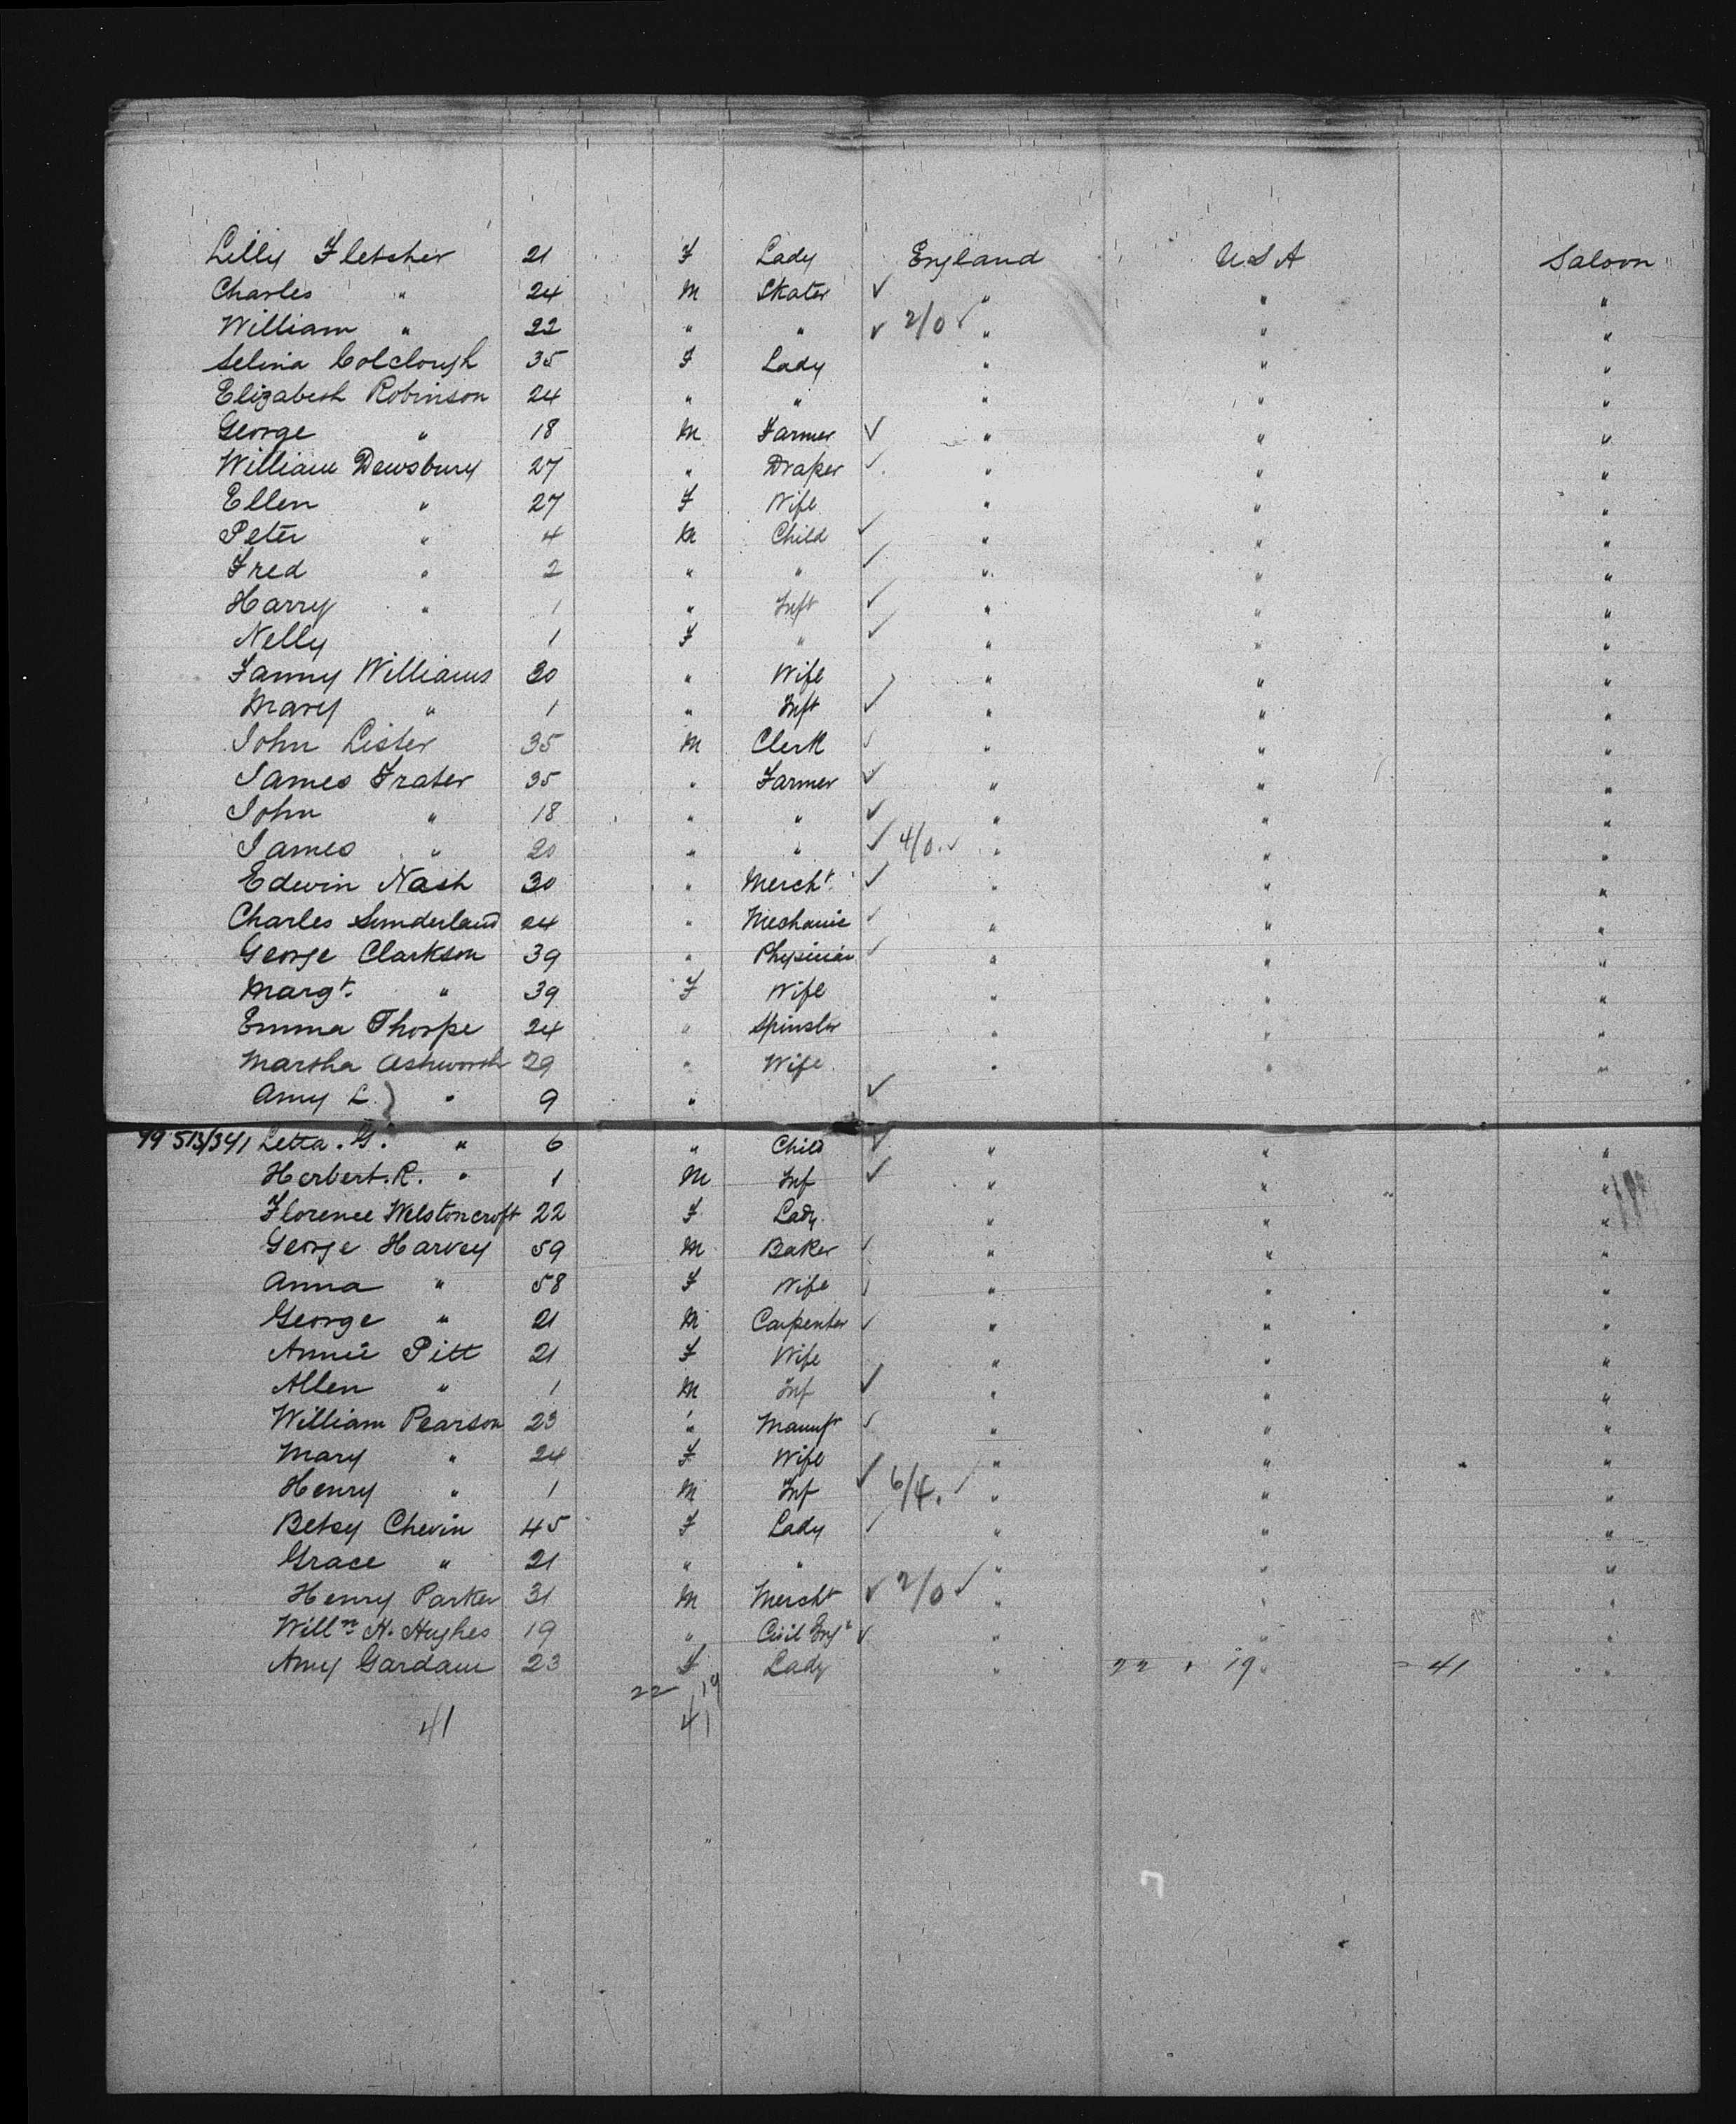 Lilly Fletcher 21 F Lady England USA Saloon
Charles " 24 M Skater ✓ " " "
William " 22 " " ✓ 2/0 ✓ " " "
Selina Colclough 35 F Lady " " "
Elizabeth Robinson 24 " " " " "
George " 18 M Farmer ✓ " " "
William Dewsbury 27 " Draper ✓ " " "
Ellen " 27 F Wife " " "
Peter " 4 M Child ✓ " " "
Fred " 2 " " ✓ " " "
Harry " 1 " Inft ✓ " " "
Nelly 1 F " ✓ " " "
Fanny Williams 30 " Wife " " "
Mary " 1 " Inft ✓ " " "
John Lister 35 M Clerk ✓ " " "
James Frater 35 " Farmer ✓ " " "
John " 18 " " ✓ " " "
James " 20 " " ✓ 4/0. ✓ " " "
Edwin Nash 30 " Mercht. ✓ " " "
Charles Sunderland 24 " Mechanic ✓ " " "
George Clarkson 39 " Physician ✓ " " "
Margt. " 39 F Wife " " "
Emma Thorpe 24 " Spinster " " "
Martha Ashworth 29 " Wife " " "
Amy L. ) " 9 " ✓
99 513/341 Letta. G. " 6 " Child ✓ " " "
Herbert. R. " 1 M Inf ✓ " " "
Florence Welstoncroft 22 F Lady " " "
George Harvey 59 M Baker ✓ " " "
Anna " 58 F Wife ✓ " " "
George " 21 M Carpenter ✓ " " "
Annie Pitt 21 F Wife " " "
Allen " 1 M Inf ✓ " " "
William Pearson 23 " Manuft ✓ " " "
Mary " 24 F Wife " " "
Henry " 1 M Inf ✓ 6/4. ✓ " " "
Betsy Chevin 45 F Lady ✓ " " "
Grace " 21 " " " " "
Henry Parker 31 M Mercht ✓ 2/0 ✓ " " "
Willm H. Hughes 19 " Civil Engr ✓ " " "
Amy Gardam 23 F Lady " 22 + 19 " = 41 "
22 19
41 41